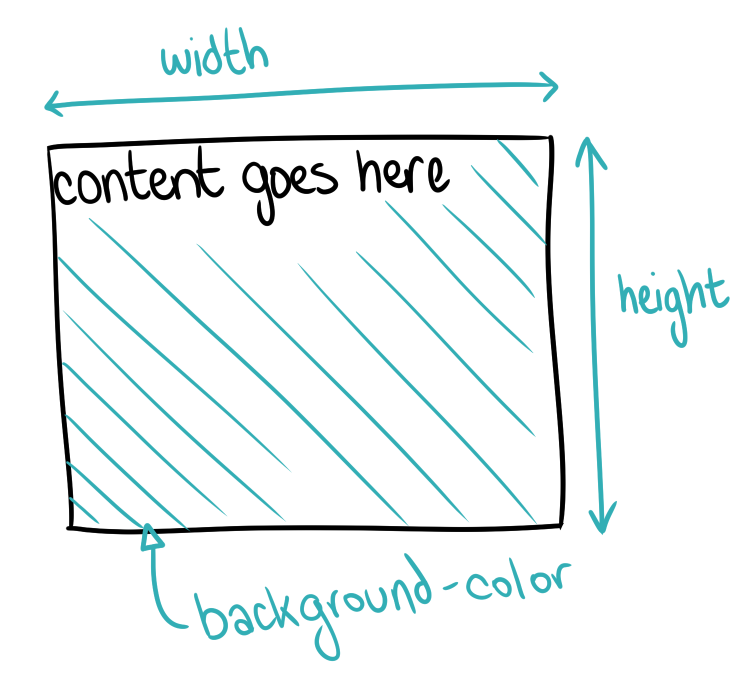 width
content goes here
height
background-color